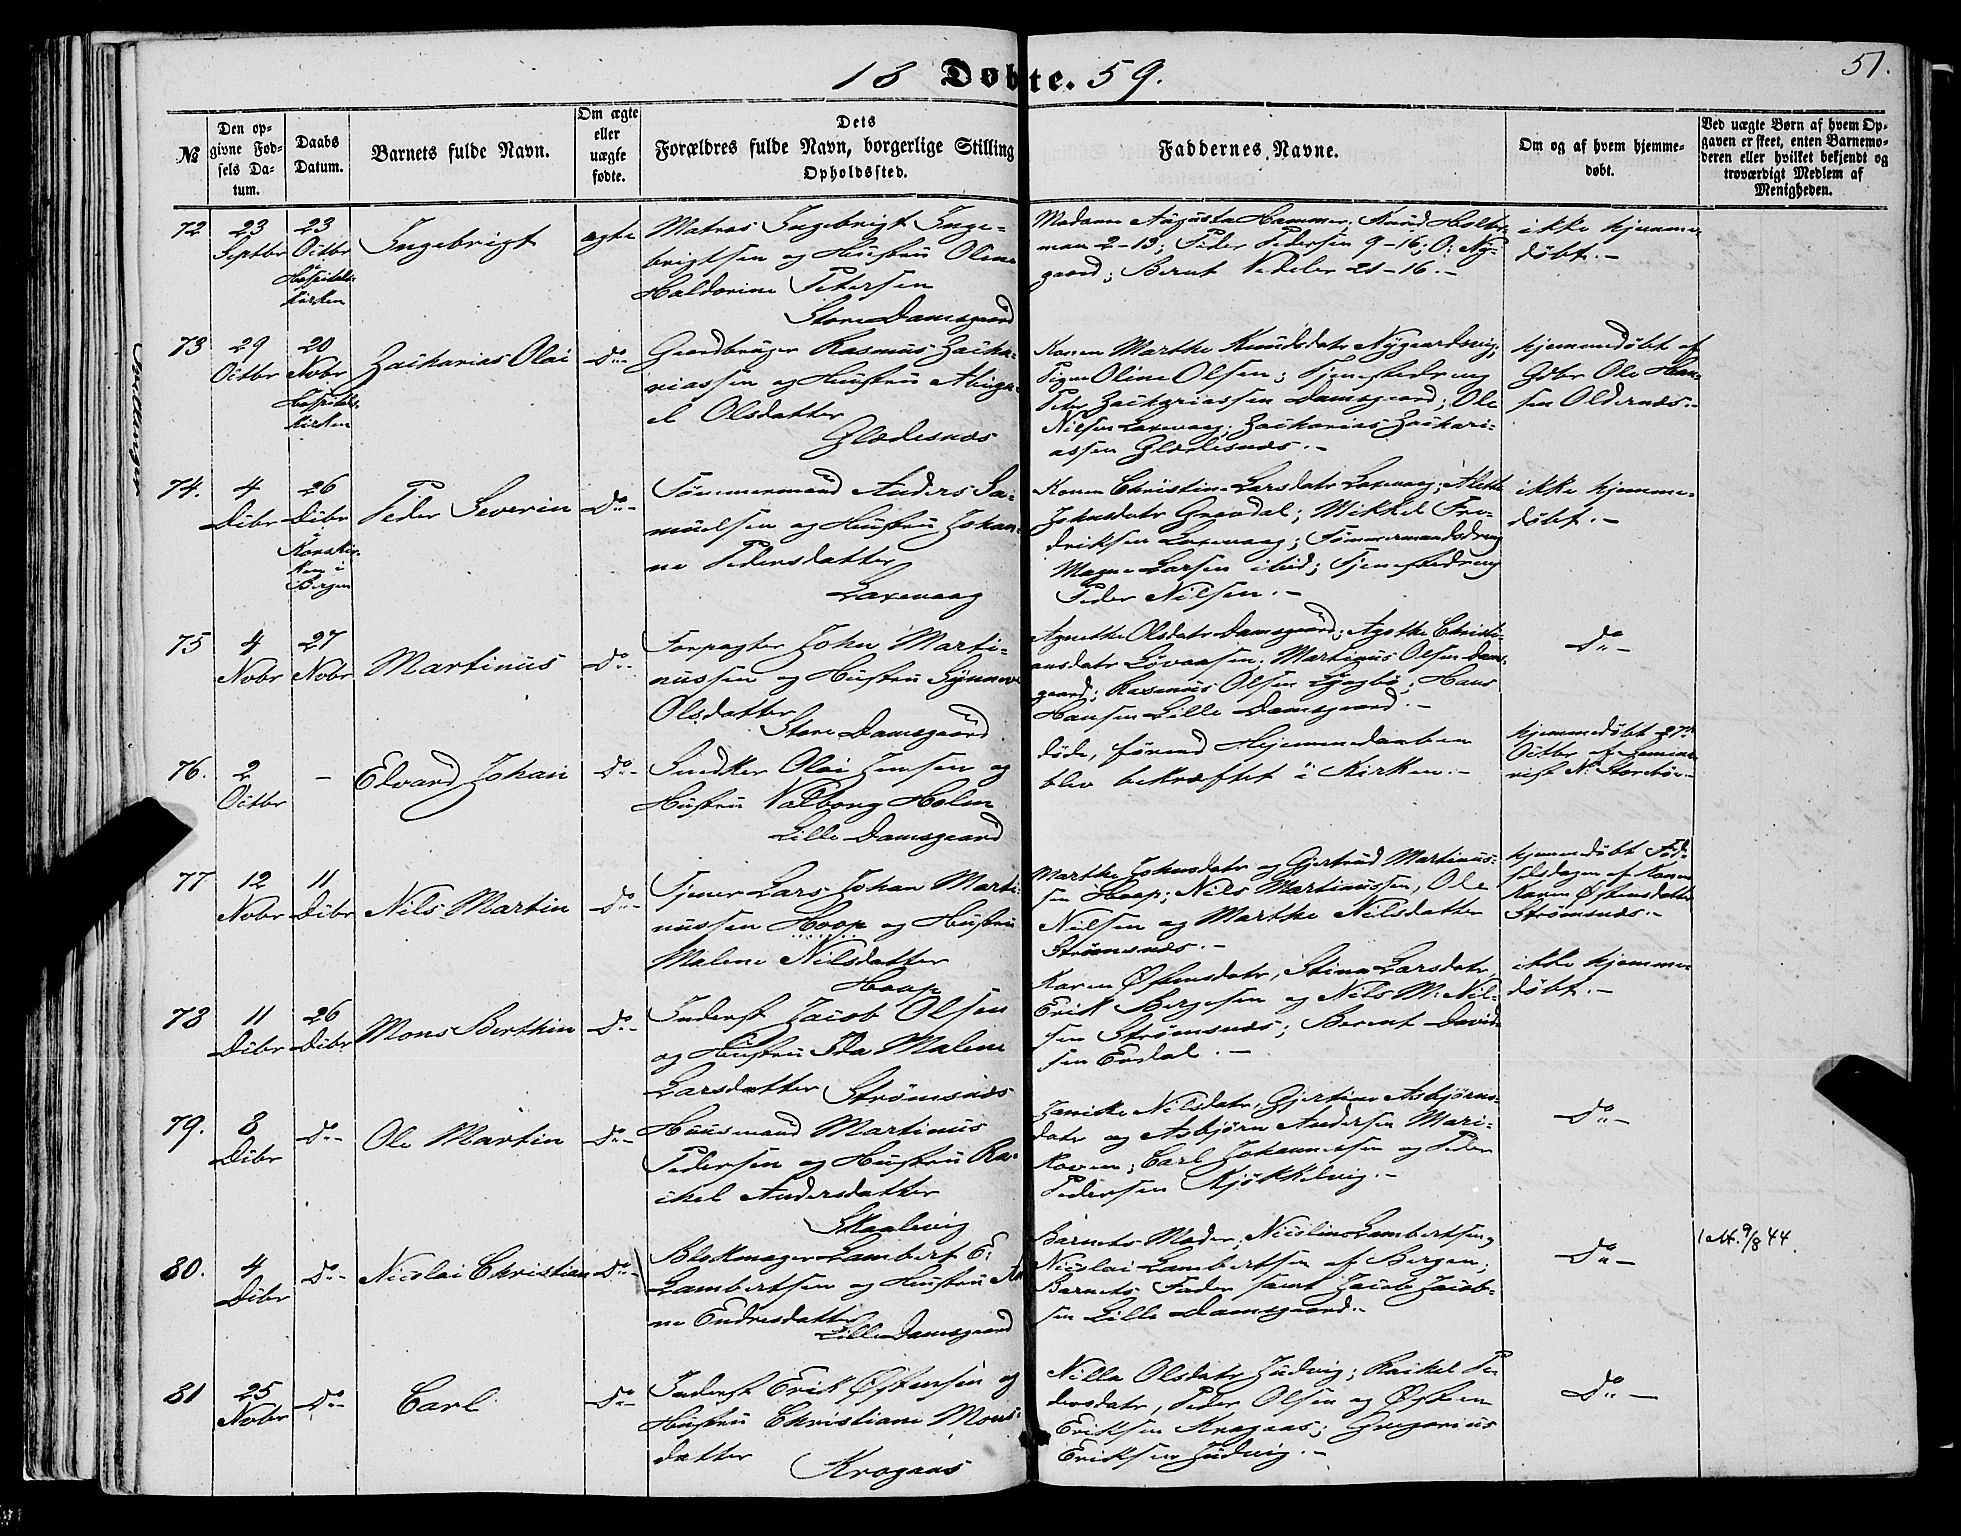 18 Døbte. 59.
51.
№
Den op-
givne Fød-
sels Da-
tum.
Daabs
Datum.
Barnets fulde Navn.
Om ægte
eller
uægte
fødte.
Dets
Forældres fulde Navn, borgerlige Stilling
Opholdssted.
Faddernes Navne.
Om og af hvem hjemme-
døbt.
Ved uægte Børn af hvem Op-
gaven er skeet, enten Barnemo-
deren eller hvilket bekjendt og
troværdigt Medlem af
Menigheden.
72
23
Septbr
23
Octbr
Hospitals-
kirken
Ingebrigt
ægte
Matros Ingebrigt Inge-
brigtsen og Hustru Oline
Haldorine Petersen
Store Damsgaard
Madame Augusta Hammer; Knud Holter-
man 2-13; Peder Pedersen 9-16; O: Ny-
gaard; Bernt Vedeler 21-16.-
ikke hjemme
døbt.-
73
29
Octbr
20
Nobr
Hospitals-
kirken
Zacharias Olai
Do-
Gaardbruger Rasmus Zacha-
riassen og Hustru Abiga-
el Olsdatter
Gladesnæs
Konen Marthe Knudsdatr Nygaardsvig;
Pigen Oline Olsen; Tjenestedreng
Peter Zachariassen Damsgaard; Ole
Nilsen Laxevaag; Zacharias Zachari-
assen Gladesnæs.-
hjemmedøbt af
Gdbr Ole Han-
sen Oldernæs.-
74.
4
Dcbr
26
Dcbr
Korskir-
ken i
Bergen
Peder Severin
Do-
Tømmermand Anders Sa-
muelsen og Hustru Johan-
ne Pedersdatter
Laxevaag
Konen Christine Larsdatr Laxevaag; Alette
Johnsdatr Gravdal; Mikkel Fre-
driksen Laxevaag; Tømmermandsdreng
Magne Larsen ibid; Tjenestedreng
Peder Nilsen.-
ikke hjemme-
døbt.-
75
4
Nobr
27
Nobr
Martinus
Do-
Forpagter John Marti-
nussen og Hustru Synneve
Olsdatter
Store Damsgaard
Agnethe Olsdatr Damsgaard; Agathe Christi-
ansdatr Løvaasen; Martinus Olsen Dams-
gaard; Rasmus Olsen Lyngbø; Hans
Hansen Lille Damsgaard.-
Do-
76.
2
Octbr
-
Edvard Johan
Do-
Snedker Olai Jensen og
Hustru Valborg Holm
Lille Damsgaard
døde, førend Hjemmedaaben
blev bekræftet i Kirken.-
hjemmedøbt 27de
Octbr af Semina-
rist N: Storebø.-
77
12
Nobr
11
Dcbr
Nils Martin
Do-
Tjener Lars Johan Marti-
nussen Hoop og Hustru
Malene Nilsdatter
Hoop
Marthe Johnsdatr og Gjertrud Martinus-
sen Hoop; Nils Martinussen, Ole
Nilsen og Marthe Nilsdatter
Strømsnæs.-
hjemmedøbt Fød-
selsdagen af Konen
Karen Østensdatter
Strømsnæs.-
78
11
Dcbr
26
Dcbr
Mons Berthin
Do-
Inderst Jacob Olsen
og Hustru Ida Malene
Larsdatter Strømsnæs
Karen Østensdatr, Stina Larsdatr,
Erik Bergesen og Nils M: Nil-
sen Strømsnæs; Berent David-
sen Erdal.-
ikke hjemme-
døbt.-
79.
8
Dcbr
Do-
Ole Martin
Do-
Huusmand Martinus
Pedersen og Hustru Ra-
chel Andersdatter
Skaalevig
Janike Nilsdatr, Gjertine Asbjørns-
datr og Asbjørn Andersen Mari-
koven; Carl Johannessen og Peder
Pedersen Kjøkkelvig.-
Do-
80.
4
Dcbr
Do-
Nicolai Christian
Do-
Blokmager Lambert E:
Lambertsen og Hustru An-
ne Endresdatter
Lille Damsgaard
Barnets Moder; Nicoline Lambertsen,
Nicolai Lambertsen af Bergen;
Barnets Fader samt Jacob Jacob-
sen Lille Damsgaard.-
Do-
1 At. 9/8 44.
81
25
Nobr
Do-
Carl
Do-
Inderst Erik Østensen og
Hustru Christiane Mons-
datter
Kragaas
Nille Olsdatr Judvig; Rachel Pe-
dersdatr, Peder Olsen og Østen
Eriksen Kragaas; Gregorius
Eriksen Judvig.-
Do-